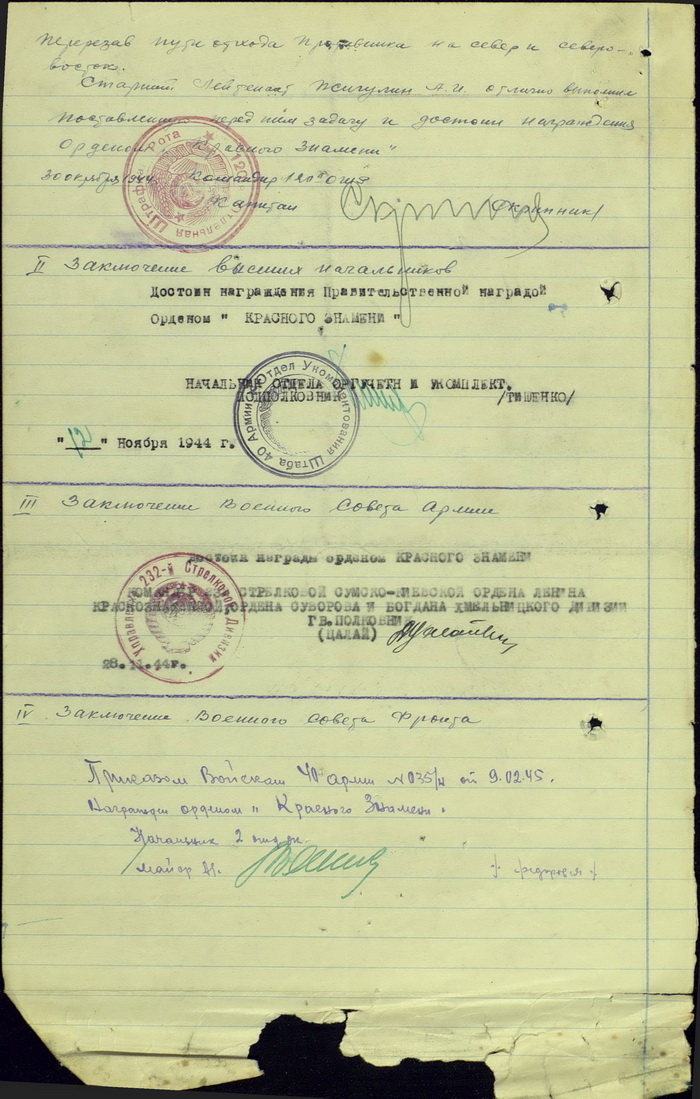 перерезав пути отхода Противника на север и северо-
восток.
Старший Лейтенант Жигулин А.И. отлично выполнил
поставленную перед ним задачу и достоин награждения
Орденом „Красного Знамени"
30 октября 1944 Командир 120й ОШР
Капитан /Скрипник/
120 Отдельная Штрафная Рота
II Заключение высших начальников
Достоин награждения Правительственной наградой
Орденом " КРАСНОГО ЗНАМЕНИ "
НАЧАЛЬНИК ОТДЕЛА ОРГУЧЕТН И УКОМПЛЕКТ.
ПОДПОЛКОВНИК /ТИШЕНКО/
Отдел Укомплектования Штаба 40 Армии
"12" Ноября 1944 г.
III Заключение Военного Совета Армии
достоин награды орденом КРАСНОГО ЗНАМЕНИ
КОМАНДИР 232 СТРЕЛКОВОЙ СУМСКО-КИЕВСКОЙ ОРДЕНА ЛЕНИНА
КРАСНОЗНАМЕННОЙ, ОРДЕНА СУВОРОВА И БОГДАНА ХМЕЛЬНИЦКОГО ДИВИЗИИ
ГВ. ПОЛКОВНИК
(ЦАЛАЙ)
Управление 232-й Стрелковой Дивизии
28.11.44г.
IV Заключение Военного Совета Фронта
Приказом Войскам 40 армии N 035/н от 9.02.45.
Награжден орденом „Красного Знамени.
Начальник 2 отд.
майор